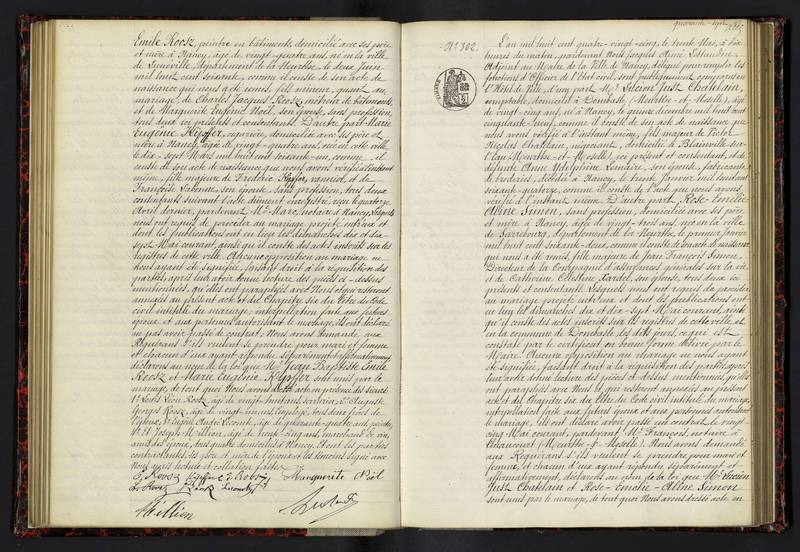 Emile Roosz, peintre en bâtiments, domicilié avec ses père
et mère à Nancy, âgé de vingt-quatre ans, né en la ville
de Lunéville, département de la Meurthe, le deux Juin
mil huit cent soixante, comme il conste de son acte de
naissance qui nous a été remis, fils mineur, quant au
mariage, de Charles Jacques Roosz, peintre de bâtiments,
et de Marguerite Euphrasie Noël, son épouse, sans profession,
tous deux ici présents et consentants. D'autre part Marie
Eugénie Kipffer, cigarière, domiciliée avec ses père et
mère à Nancy, âgée de vingt-quatre ans, née en cette ville
le dix-sept Mars mil huit cent soixante-un, comme il
conste de son acte de naissance que nous avons vérifié à l'instant
même, fille majeure de Frédéric Kipffer, vannier, et de
Françoise Labonne, son épouse, sans profession, tous deux
consentants suivant l'acte dûment enregistré, reçu le quatorze
Avril dernier, pardevant Me Marc, notaire à Nancy, Lesquels
nous ont requis de procéder au mariage projeté entr'eux et
dont les publications ont eu lieu les dimanches dix et dix-
sept Mai courant, ainsi qu'il conste des actes inscrits sur les
registres de cette ville. Aucune opposition au mariage ne
nous ayant été signifiée, faisant droit à la réquisition des
parties, après leur avoir donné lecture des pièces ci-dessus
mentionnées, qu'elles ont paraphées avec Nous et qui resteront
annexées au présent acte et du Chapitre six du titre du Code
civil intitulé du mariage, interpellation faite aux futurs
époux et aux personnes autorisant le mariage, ils ont déclaré
ne pas avoir passé de contrat. Nous avons demandé aux
Requérans s'ils veulent se prendre pour mari et femme
et chacun d'eux ayant répondu séparément et affirmativement
déclarons au nom de la loi que Mr Jean Baptiste Emile
Roosz et Marie Eugénie Kipffer sont unis par le
mariage, de tout quoi Nous avons dressé acte en présence des sieurs
Léon Roosz, âgé de vingt-huit ans, 2° Auguste
Georges Roosz, âgé de vingt-un ans, Employé, tous deux frères de
l'époux, 3° André Lecomte, âgé de quarante-quatre ans,
et 4° Joseph Millien, âgé de ans, marchand de vin,
tous quatre domiciliés à Nancy, et ont les parties
contractantes, les père et mère de l'époux et les témoins signé avec
Nous après lecture et collation faites.
E. Roosz Kipffer C. J. Roosz Marguerite Noël
L. Roosz G. Roosz Lecomte
J. Millien
N° 302.
L'an mil huit cent quatre-vingt-cinq, le trente Mai, à dix
heures du matin, pardevant Nous Jacques Aimé
Adjoint au Maire de la Ville de Nancy, délégué pour remplir les
fonctions d'Officier de l'Etat civil, sont publiquement comparus en
l'Hôtel de Ville, d'une part Mr Lucien Just Chatelain,
comptable, domicilié à Dombasle (Meurthe-et-Moselle), âgé
de vingt-cinq ans, né à Nancy, le quinze décembre mil huit cent
cinquante-neuf, comme il conste de son acte de naissance que
nous avons vérifié à l'instant même, fils majeur de Victor
Nicolas Chatelain, négociant, domicilié à Blainville-sur-
l'Eau (Meurthe-et-Moselle), ici présent et consentant, et de
défunte Anne Joséphine Lemaire, son épouse,
décédée à Nancy, le trente Janvier mil huit cent
soixante-quatorze, comme il conste de l'acte que nous avons
vérifié à l'instant même. D'autre part Rose-Emélie-
Aline Simon, sans profession, domiciliée avec ses père
et mère à Nancy, âgée de vingt-trois ans, née en la ville
de Sarrebourg, département de la Meurthe, le premier Janvier
mil huit cent soixante-deux, comme il conste de son acte de naissance
qui nous a été remis, fille majeure de Jean François Simon,
Directeur de la Compagnie d'assurances générales sur la vie,
et de Catherine Célestine Xardel, son épouse, tous deux ici
présents et consentants. Lesquels nous ont requis de procéder
au mariage projeté entr'eux et dont les publications ont
eu lieu les dimanches dix et dix-sept Mai courant, ainsi
qu'il conste des actes inscrits sur les registres de cette ville et
en la commune de Dombasle, les mêmes jours, ce qui est
constaté par le certificat en bonne forme délivré par le
Maire. Aucune opposition au mariage ne nous ayant
été signifiée, faisant droit à la réquisition des parties, après
leur avoir donné lecture des pièces ci-dessus mentionnées, qu'elles
ont paraphées avec Nous et qui resteront annexées au présent
acte et du Chapitre six du titre du Code civil intitulé du mariage,
interpellation faite aux futurs époux et aux personnes autorisant
le mariage, ils ont déclaré avoir passé un contrat, le vingt-
cinq Mai courant, pardevant Me François, notaire à
(Meurthe-et-Moselle). Nous avons demandé
aux Requérans s'ils veulent se prendre pour mari et
femme, et chacun d'eux ayant répondu séparément et
affirmativement, déclarons au nom de la loi que Mr Lucien
Just Chatelain et Rose-Emélie-Aline Simon
sont unis par le mariage, de tout quoi Nous avons dressé acte en